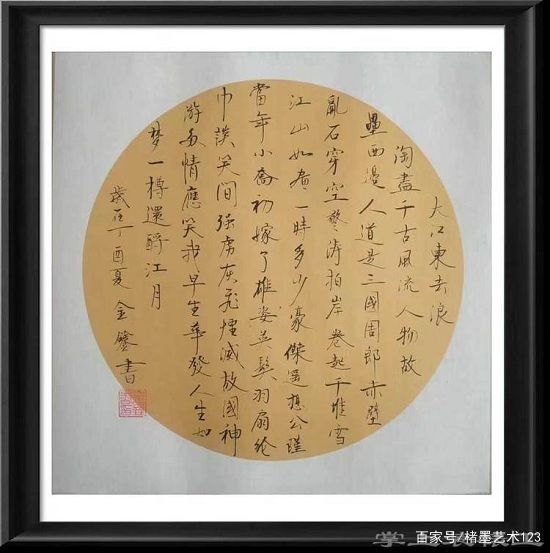 大江東去浪
淘盡千古風流人物故
壘西邊人道是三國周郎赤壁
亂石穿空驚濤拍岸卷起千堆雪
江山如畫一時多少豪傑遥想公瑾
當年小喬初嫁了雄姿英發羽扇綸
巾談笑間强虜灰飛煙滅故國神
游多情應笑我早生華發人生如
梦一樽還酹江月
歲在丁酉夏金書
百家号/楮墨艺术123